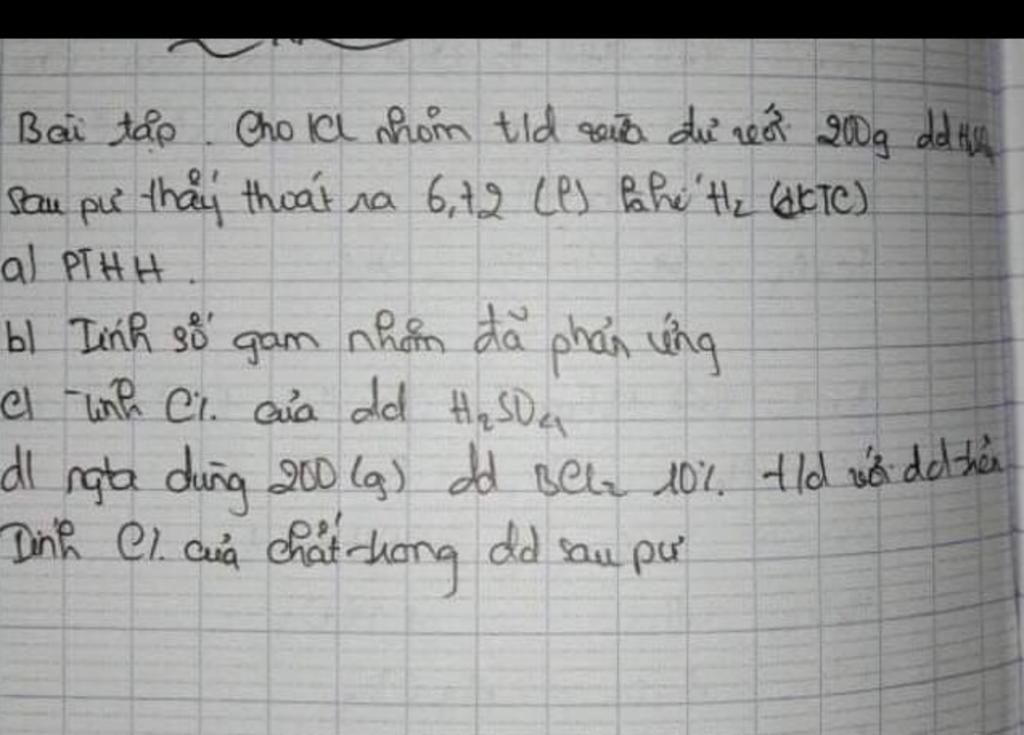 Bài tập. Cho Kl nhôm t/d vừa đủ với 200g dd
Sau pư thấy thoát ra 6,72 (l) khí H₂ (ĐKTC)
a) PTHH.
b) Tính số gam nhôm đã phản ứng
c) Tính C%. của dd H₂SO₄
d) ngta dùng 200(g) dd BCl₂ 10%. t/d với dd trên
Tính C%. của chất trong dd sau pư